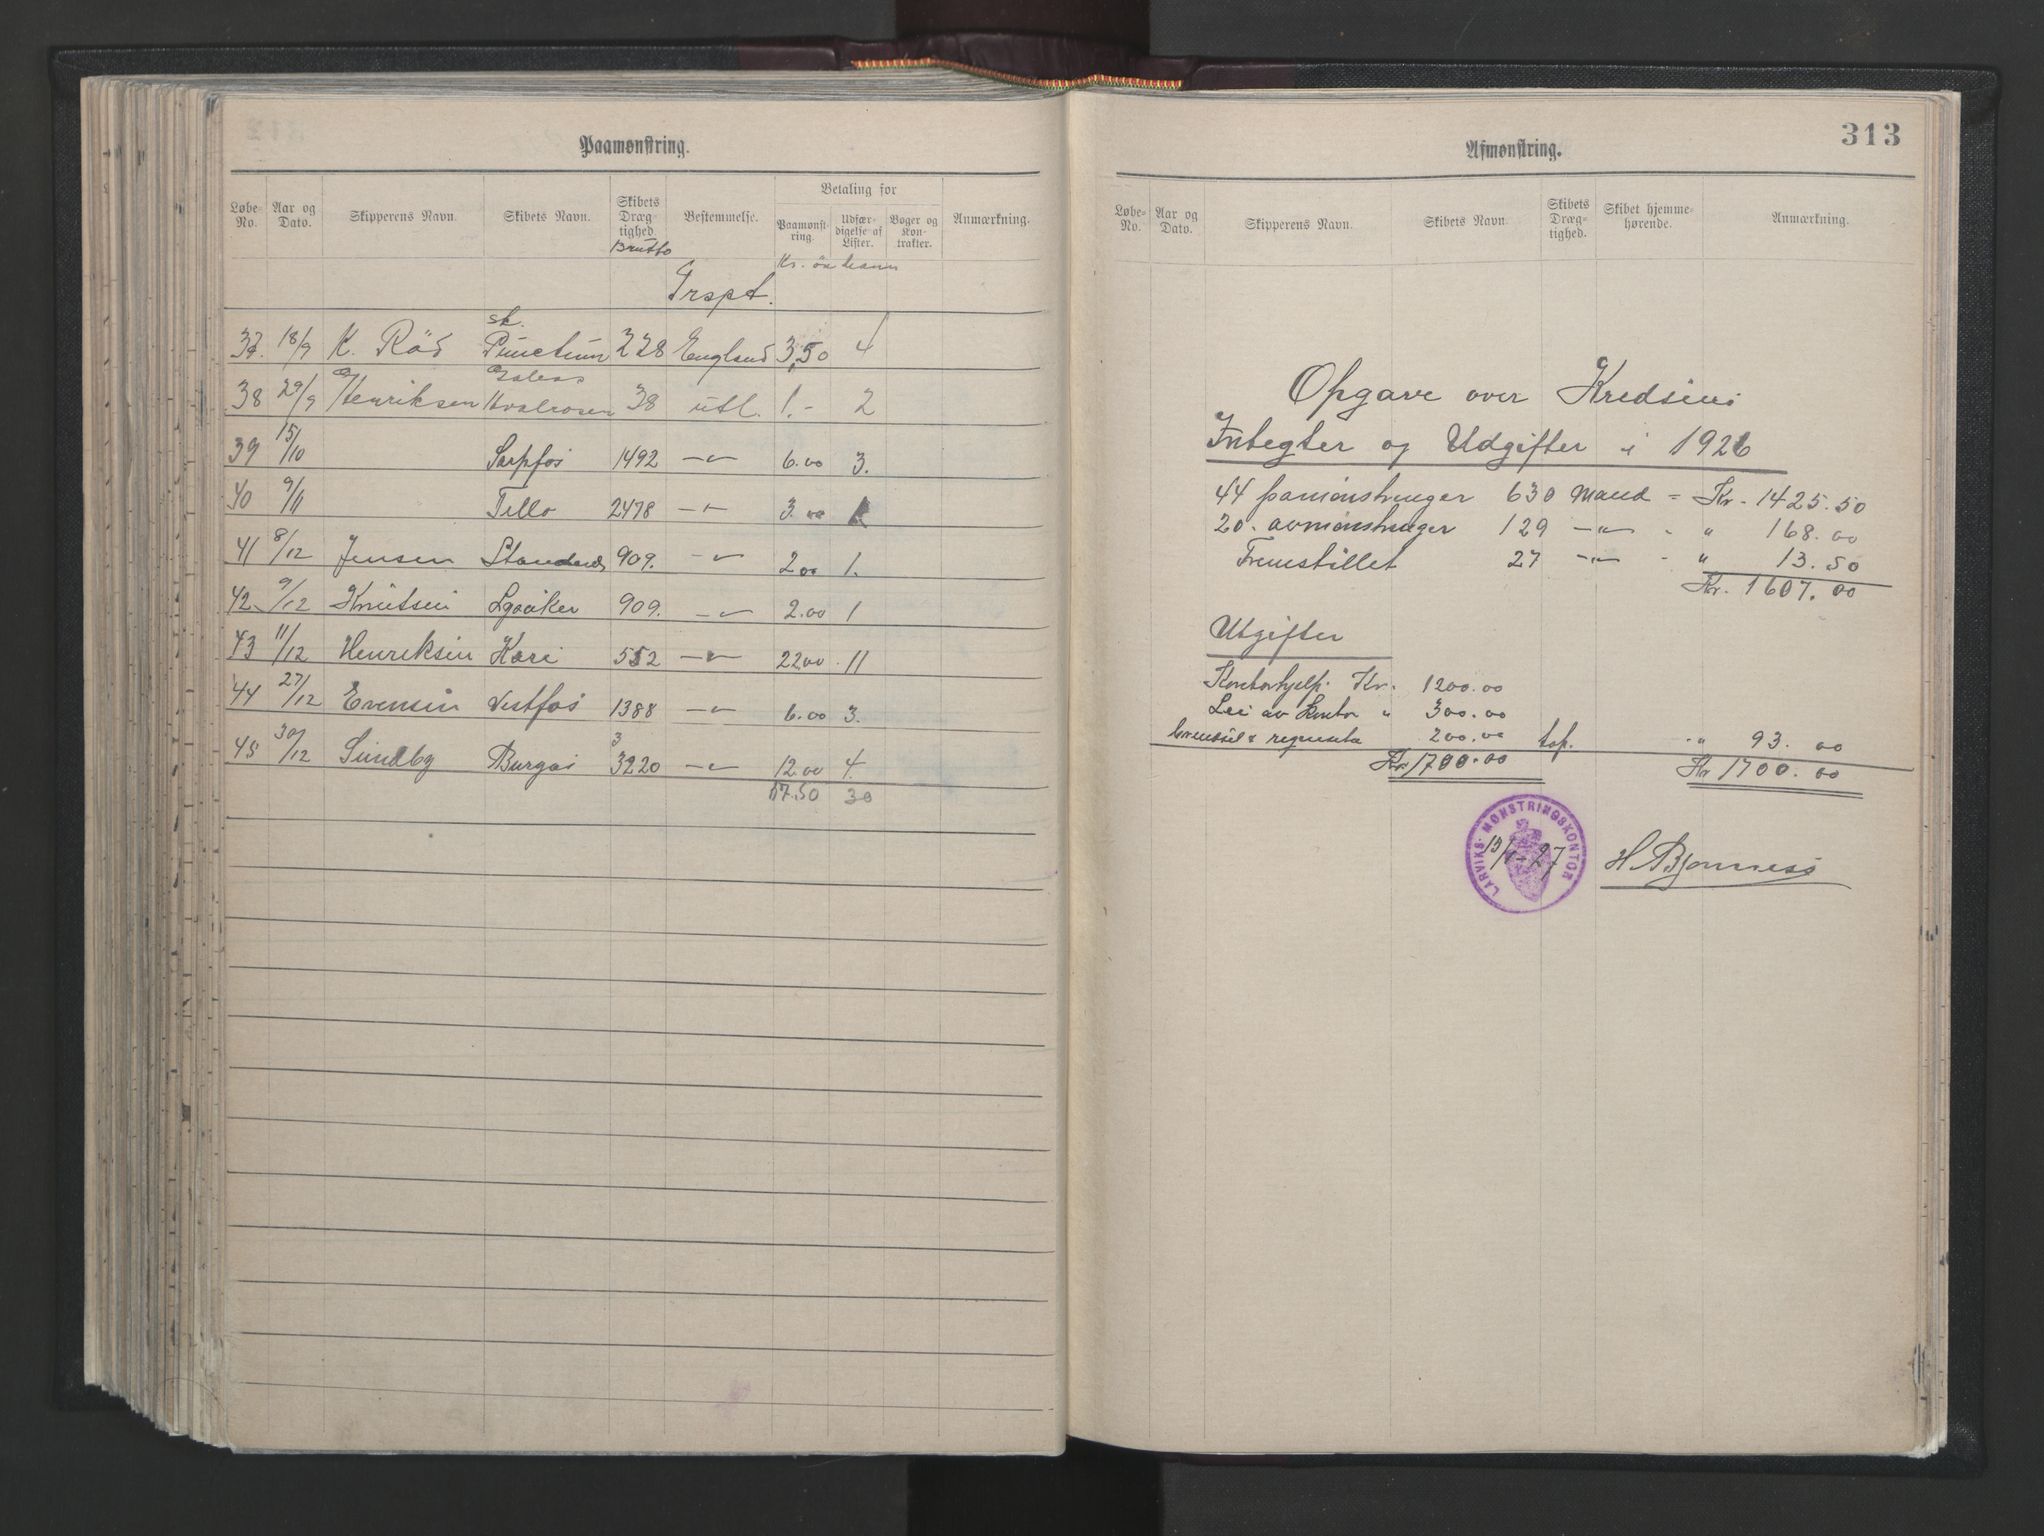 Paamønstring.
Løbe-No. Aar og Dato. Skipperens Navn. Skibets Navn. Skibets Dræg-tighed. Bestemmelse. Betaling for Paamønst-ring. Udfær-digelse af Lister. Bøger og Kon-trakter. Anmærkning.
Brutto
Kr. øre
Trspt.
37. 18/9 K. Röd sk. Punctum 228 England 3,50 4
38 29/9 Henriksen Hvalrosen 38 utl. 1.- 2
39 15/10 Sarpfos 1492 -"- 6.00 3.
40 9/11 Tello 2478 -"- 3.00
41 8/12 Jensen Standard 909. -"- 2.00 1.
42 9/12 Knutsen Lysaker 909. -"- 2.00 1
43 11/12 Henriksen Kari 552 -"- 22.00 11
44 27/12 Evensen Vestfos 1388 -"- 6.00 3.
45 30/12 Sundby Burgos 3220 -"- 12.00 4.
57.50 30
313
Afmønstring.
Løbe-No. Aar og Dato. Skipperens Navn. Skibets Navn. Skibets Dræg-tighed. Skibet hjemme-hørende. Anmærkning.
Opgave over Kredsens
Integter og Udgifter i 1926
44 paamönstringer 630 Mand = Kr. 1425.50
20. avmönstringer 129 -"- - " 168.00
Fremstillet 27 -"- - " 13.50
Kr. 1607.00
Utgifter
Kontorhjelp. Kr. 1200.00
Leie av Kontor " 300.00
200.00 tap. " 93.00
Kr. 1700.00 Kr 1700.00
LARVIKS MØNSTRINGSKONTOR
13/1-27 H. Bjonness